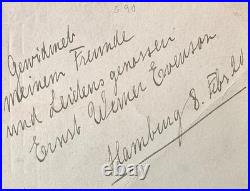 Gewidmet
meinem Freunde
und Leidensgenossen
Ernst Werner Evenson
Hamburg 8. Febr. 20